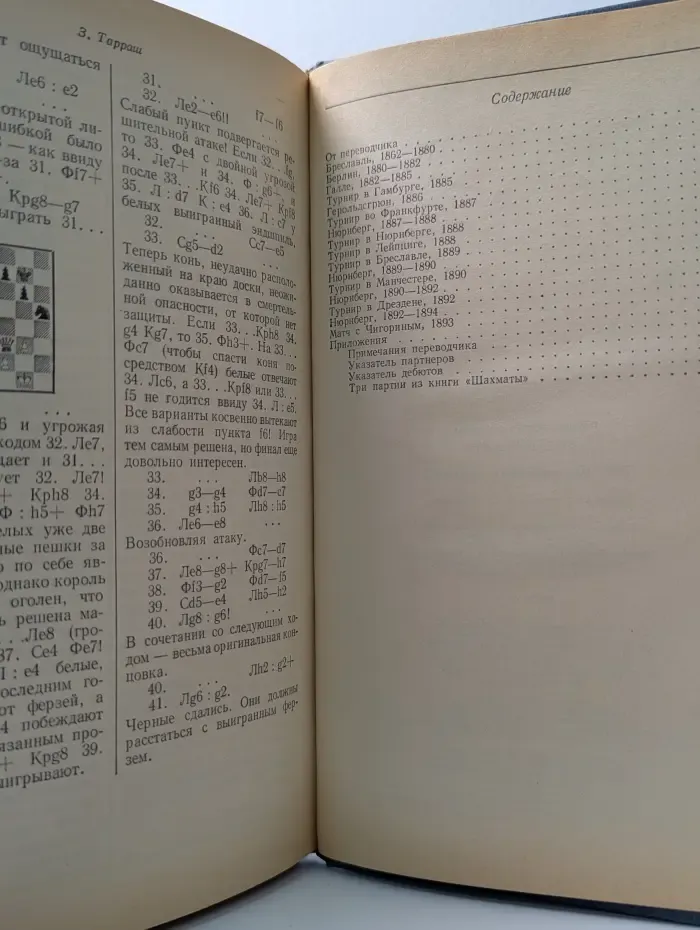 З. Тарраш
т ощущаться
Ле6 : e2
. . .
открытой ли-
шибкой было
3 — как ввиду
-за 31. Фf7+
Крg8—g7
ыграть 31...
. . .
6 и угрожая
ходом 32. Ле7,
дает и 31...
ует 32. Ле7!
+ Крh8 34.
Ф : h5+ Фh7
елых уже две
ные пешки за
о по себе яв-
однако король
оголен, что
ь решена ма-
. . .Ле8 (гро-
37. Се4 Фе7!
Л : e4 белые,
последним го-
ют ферзей, а
4 побеждают
язанным про-
+ Крg8 39.
ыигрывают.
31. . . . f7—f6
32. Ле2—e6!! . . .
Слабый пункт подвергается ре-
шительной атаке! Если 32...Лg,
то 33. Фе4 с двойной угрозой
34. Ле7+ и 34. Ф : g6+, а
после 33. . .Кf6 34. Ле7+ Крf8
35. Л : d7 К : e4 36. Л : c7 у
белых выигранный эндшпиль.
32. . . . Сс7—e5
33. Сg5—d2 . . .
Теперь конь, неудачно располо-
женный на краю доски, неожи-
данно оказывается в смертель-
ной опасности, от которой нет
защиты. Если 33. . .Крh8 34.
g4 Кg7, то 35. Фh3+. На 33. . .
Фс7 (чтобы спасти коня по-
средством Кf4) белые отвечают
34. Лс6, а 33. . .Крf8 или 33. . .
f5 не годится ввиду 34. Л : e5.
Все варианты косвенно вытекают
из слабости пункта f6! Игра
тем самым решена, но финал еще
довольно интересен.
33. . . . Лb8—h8
34. g3—g4 Фd7—c7
35. g4 : h5 Лh8 : h5
36. Ле6—e8 . . .
Возобновляя атаку.
36. . . . Фс7—d7
37. Ле8—g8+ Крg7—h7
38. Фf3—g2 Фd7—f5
39. Сd5—e4 Лh5—h2
40. Лg8 : g6! . . .
В сочетании со следующим хо-
дом — весьма оригинальная кон-
цовка.
40. . . . Лh2 : g2+
41. Лg6 : g2.
Черные сдались. Они должны
расстаться с выигранным фер-
зем.
Содержание
От переводчика
Бреславль, 1862—1880
Берлин, 1880—1882
Галле, 1882—1885
Турнир в Гамбурге, 1885
Герольдсгрюн, 1886
Турнир во Франкфурте, 1887
Нюрнберг, 1887—1888
Турнир в Нюрнберге, 1888
Турнир в Лейпциге, 1888
Турнир в Бреславле, 1889
Нюрнберг, 1889—1890
Турнир в Манчестере, 1890
Нюрнберг, 1890—1892
Турнир в Дрездене, 1892
Нюрнберг, 1892—1894
Матч с Чигориным, 1893
Приложения
Примечания переводчика
Указатель партнеров
Указатель дебютов
Три партии из книги «Шахматы»